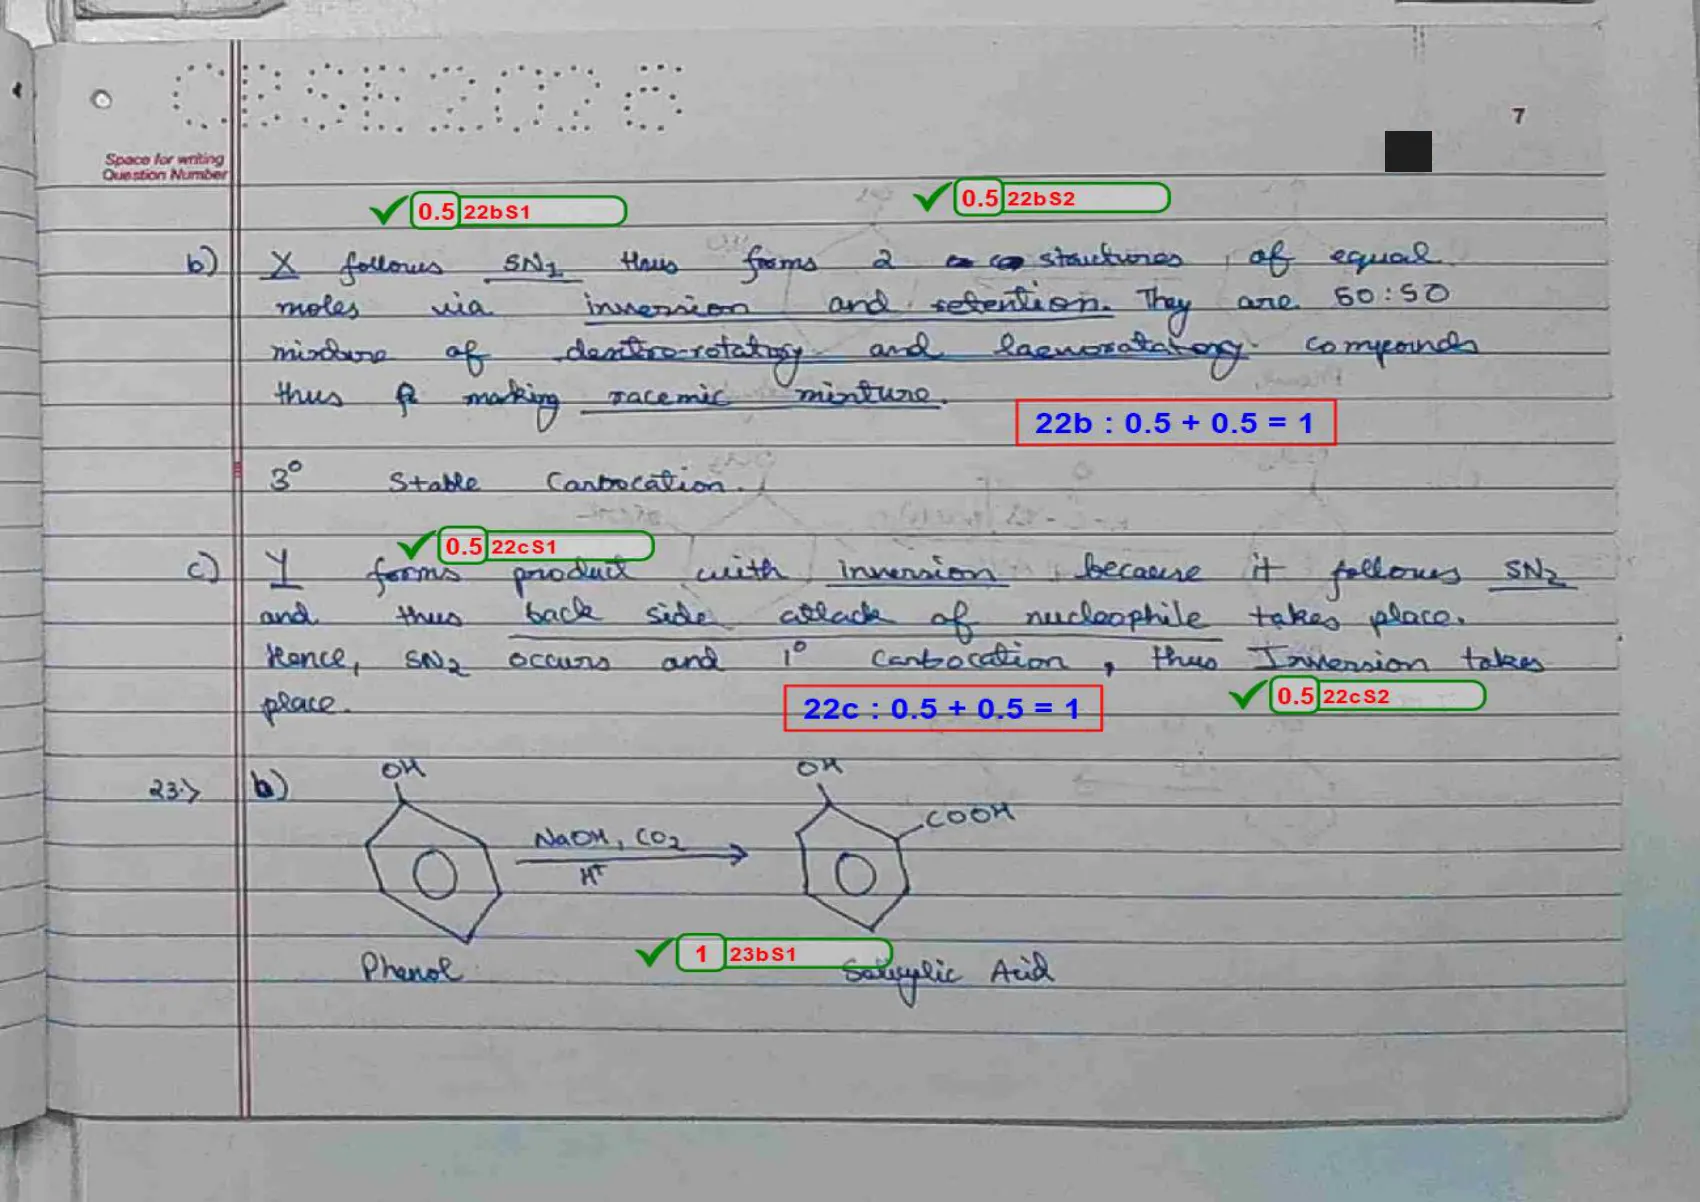 CBSE 2026
7
Space for writing
Question Number
✓ 0.5 22bS1
✓ 0.5 22bS2
b) X follows SN1 thus forms 2 structures of equal
moles via inversion and retention. They are 50:50
mixture of dextro-rotatory and laevorotatory compounds
thus making racemic mixture.
22b : 0.5 + 0.5 = 1
3° Stable Carbocation.
✓ 0.5 22cS1
c) Y forms product with inversion because it follows SN2
and thus back side attack of nucleophile takes place.
Hence, SN2 occurs and 1° carbocation, thus Inversion takes
place.
22c : 0.5 + 0.5 = 1
✓ 0.5 22cS2
23.> b)
OH
OH
COOH
NaOH, CO2
H+
✓ 1 23bS1
Phenol
Salicylic Acid